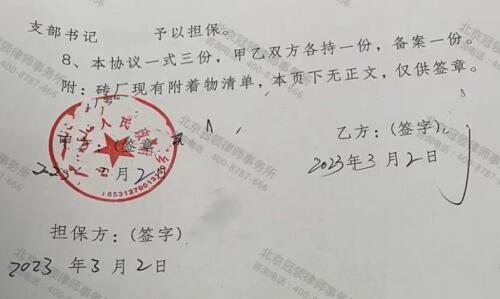 支部书记 予以担保。
8、本协议一式三份，甲乙双方各持一份，备案一份。
附：砖厂现有附着物清单，本页下无正文，仅供签章。
甲方：（签章
乙方：（签字）
2023年3月2日
担保方：（签字）
2023 年3月2日
北京冠领律师事务所
咨询电话：400-8787-666